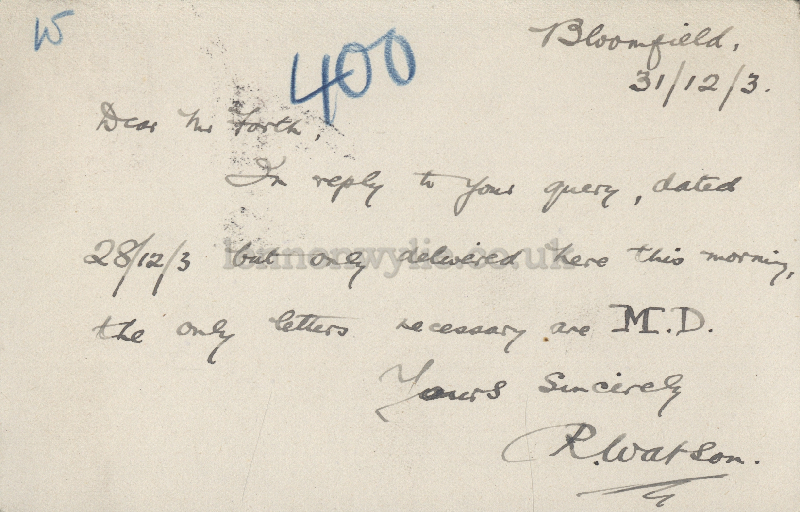 W
400
Bloomfield,
31/12/3.
Dear Mr Forth,
In reply to your query, dated
28/12/3 but only delivered here this morning,
the only letters necessary are M.D.
Yours Sincerely
R. Watson.
lennonwylie.co.uk